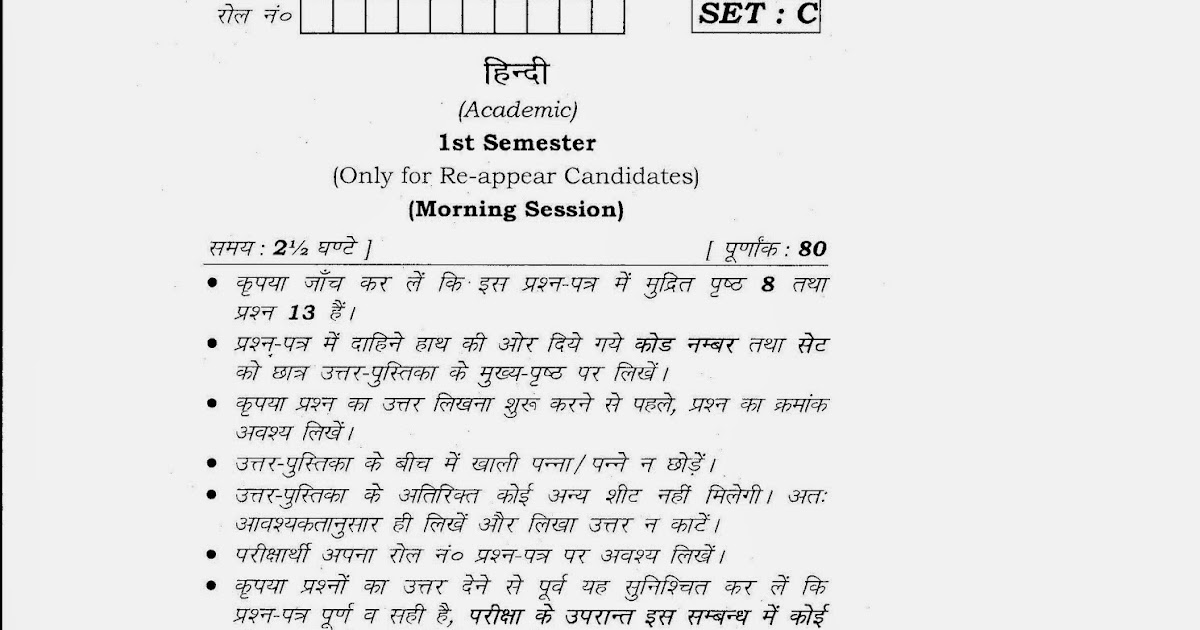 रोल नं०
SET : C
हिन्दी
(Academic)
1st Semester
(Only for Re-appear Candidates)
(Morning Session)
समय : 2½ घण्टे ] [ पूर्णांक : 80
• कृपया जाँच कर लें कि इस प्रश्न-पत्र में मुद्रित पृष्ठ 8 तथा
प्रश्न 13 हैं।
• प्रश्न-पत्र में दाहिने हाथ की ओर दिये गये कोड नम्बर तथा सेट
को छात्र उत्तर-पुस्तिका के मुख्य-पृष्ठ पर लिखें।
• कृपया प्रश्न का उत्तर लिखना शुरू करने से पहले, प्रश्न का क्रमांक
अवश्य लिखें।
• उत्तर-पुस्तिका के बीच में खाली पन्ना/पन्ने न छोड़ें।
• उत्तर-पुस्तिका के अतिरिक्त कोई अन्य शीट नहीं मिलेगी। अतः
आवश्यकतानुसार ही लिखें और लिखा उत्तर न काटें।
• परीक्षार्थी अपना रोल नं० प्रश्न-पत्र पर अवश्य लिखें।
• कृपया प्रश्नों का उत्तर देने से पूर्व यह सुनिश्चित कर लें कि
प्रश्न-पत्र पूर्ण व सही है, परीक्षा के उपरान्त इस सम्बन्ध में कोई